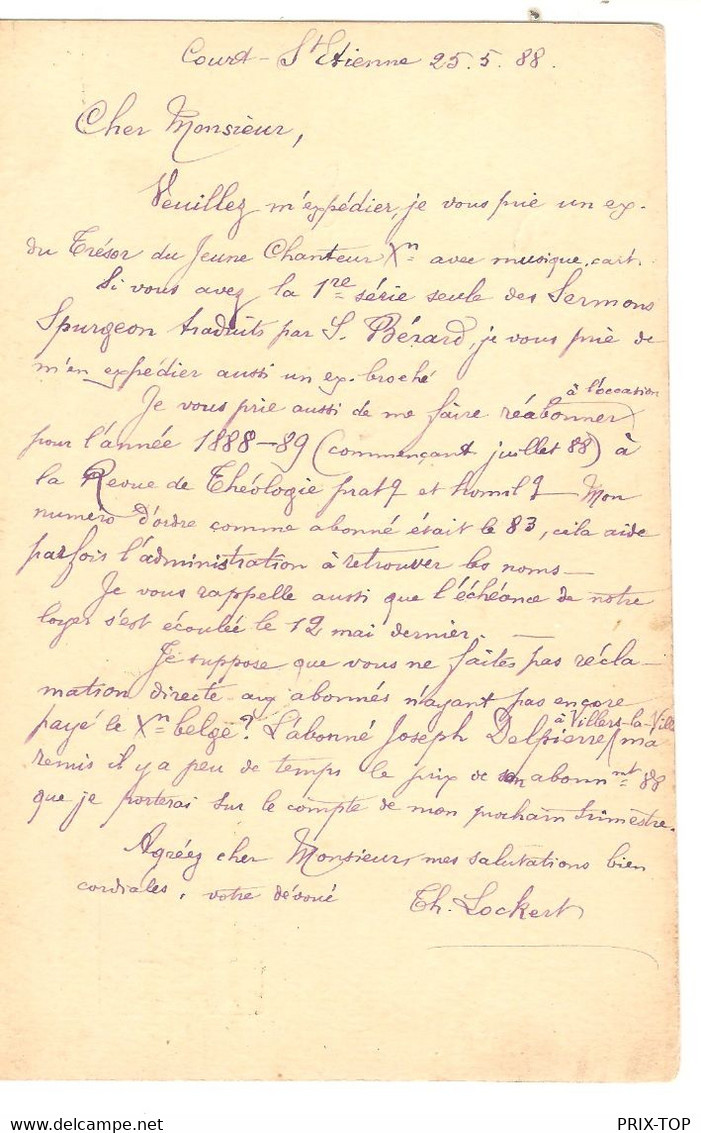 Court-St Etienne 25.5.88.
Cher Monsieur,
Veuillez m'expédier, je vous prie un ex.
du Trésor du Jeune Chanteur Xn avec musique, cart.
Si vous avez la 1re série seule des Sermons
Spurgeon traduits par S. Bérard, je vous prie de
m'en expédier aussi un ex. broché
à l'occasion
Je vous prie aussi de me faire réabonner
pour l'année 1888-89 (commençant juillet 88) à
la Revue de Théologie prat q et homil q — Mon
numéro d'ordre comme abonné était le 83, cela aide
parfois l'administration à retrouver les noms —
Je vous rappelle aussi que l'échéance de notre
loyer s'est écoulée le 12 mai dernier. —
Je suppose que vous ne faites pas récla-
mation directe aux abonnés n'ayant pas encore
à Villers-la-Ville
payé le Xn belge? L'abonné Joseph Delpierre m'a
remis il y a peu de temps le prix de son abonnmt 88
que je porterai sur le compte de mon prochain trimestre.
Agréez cher Monsieur, mes salutations bien
cordiales, votre dévoué Th. Lockert
PRIX-TOP